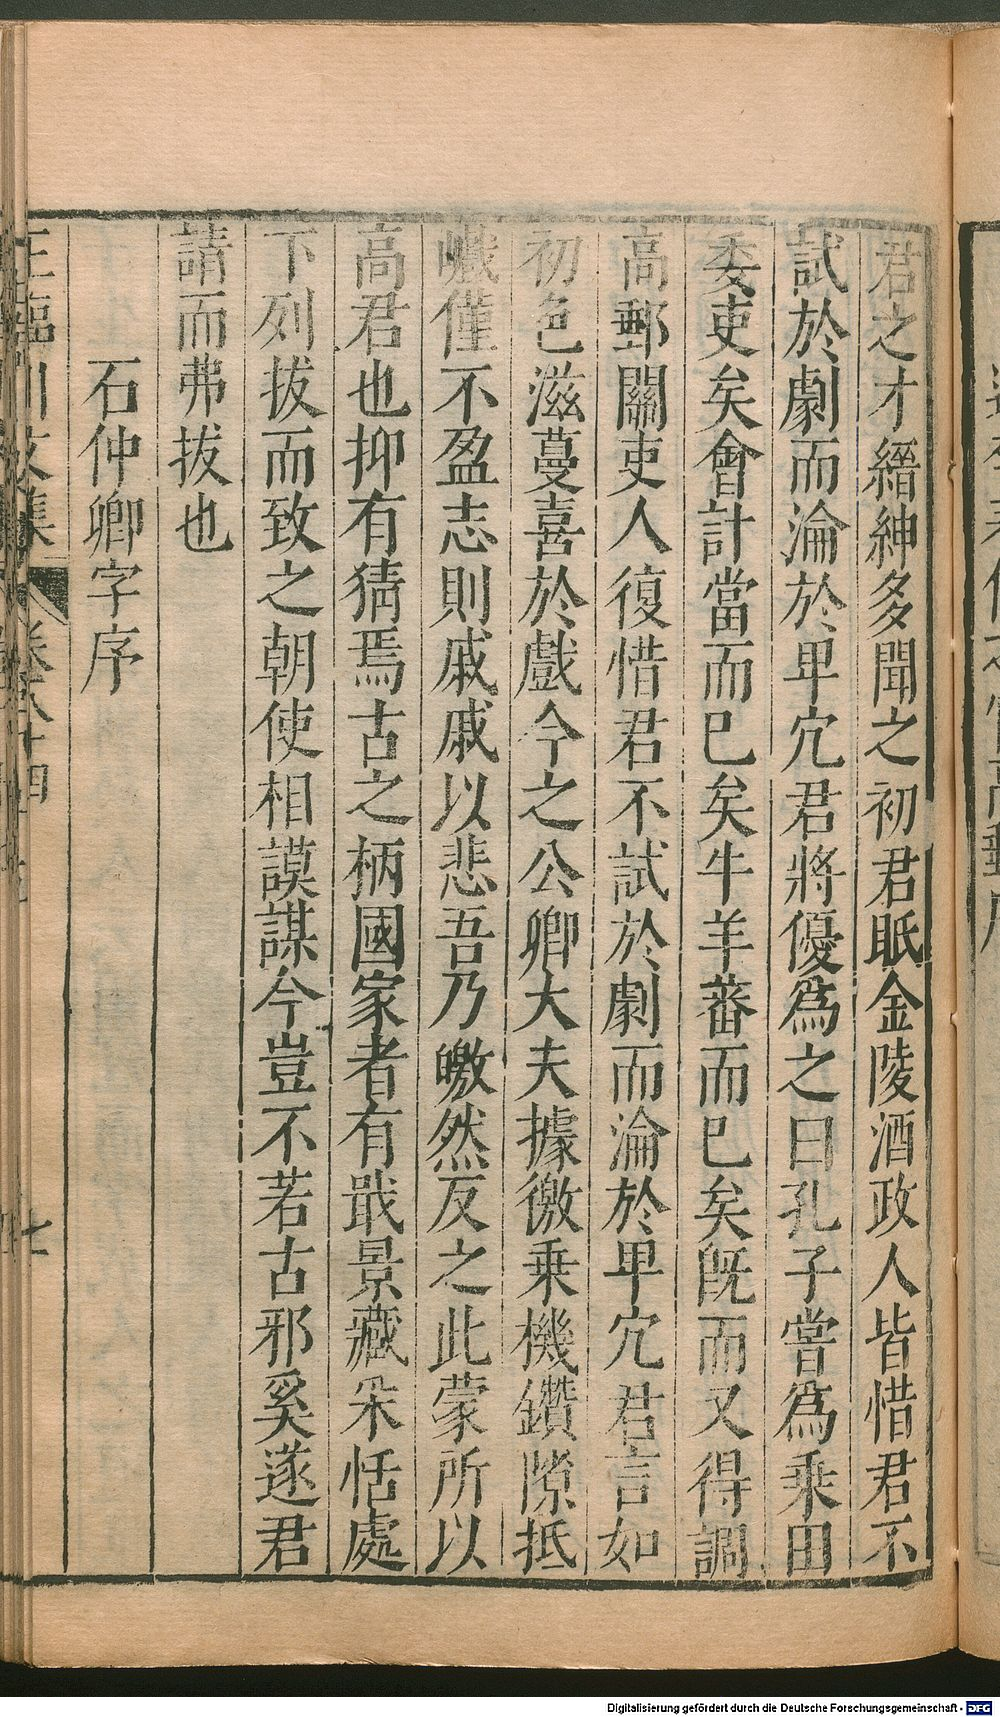 君之才縉紳多聞之初君眂金陵酒政人皆惜君不
試於劇而淪於甲宂君將優爲之曰孔子嘗爲乗田
委吏矣會計當而已矣牛羊蕃而已矣旣而又得調
高郵關吏人復惜君不試於劇而淪於甲宂君言如
初色滋蔓喜於戲今之公卿大夫據徼乗機鑽隙抵
巇僅不盈志則戚戚以悲吾乃皦然反之此蒙所以
高君也抑有猜焉古之柄國家者有戢景藏采恬處
下列拔而致之朝使相謨謀今豈不若古邪奚遂君
請而弗拔也
石仲卿字序
王臨川文集
卷八十四
七
Digitalisierung gefördert durch die Deutsche Forschungsgemeinschaft - DFG